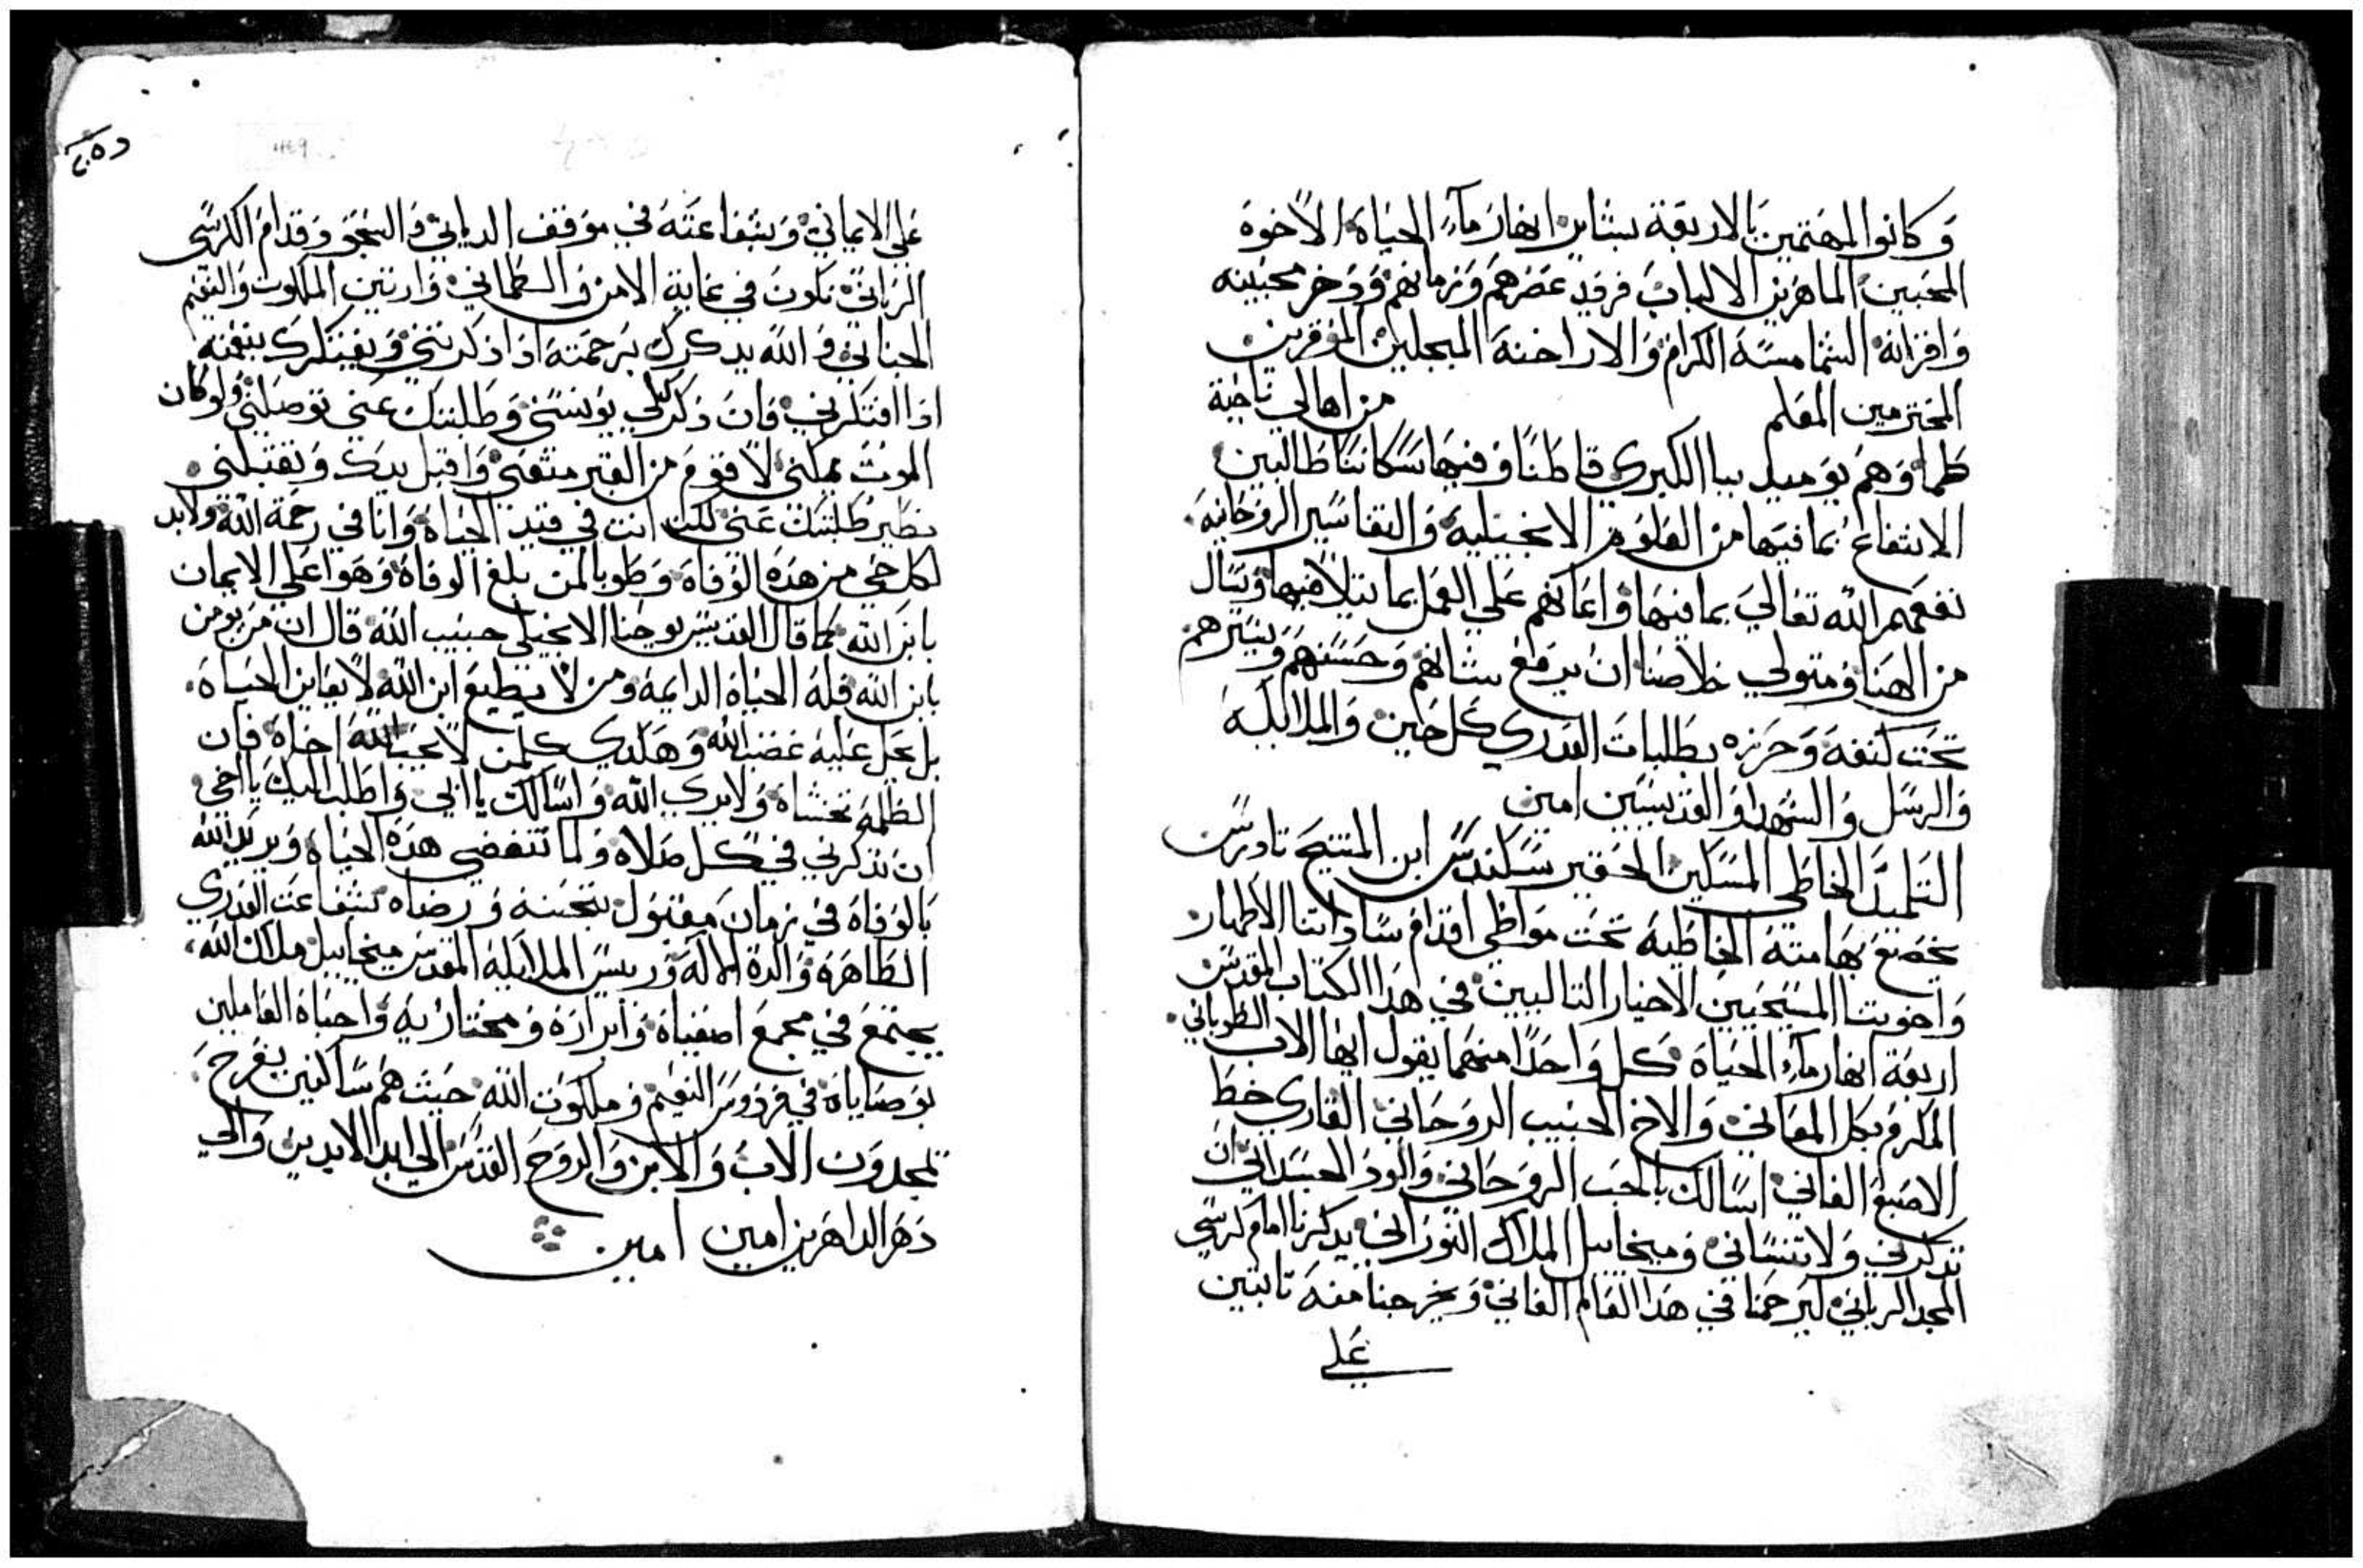 وكانوا المهتمين بالاربعة بشاير انهار ماء الحياة الاخوة
المحبين الماهرين الالباب فرقد عصرهم وزمانهم ودخر محبينه
واقرانه الشمامسة الكرام والاراخنة المبجلين الموقرين
المحترمين المعلم من اهالي ناحية
طما وهم يوميد ببا الكبرى قاطنا وفيها سكاننا طالبين
الانتفاع بما فيها من العلوم الانجيلية والتفاسير الروحانية
نفعهم الله تعالي بما فيها واعانهم علي العمل بما يتلا فيها ونسال
من الهنا ومتولي خلاصنا ان يرفع شانهم وحسنهم ويسيرهم
تحت كنفه وحرزه بطلبات العدري كل حين والملايكه
والرسل والشهدا والقديسين امين
التلميذ الخاطي المسكين الحقير ابن المتنيح تادرس
يخضع بهامته الخاطيه تحت مواطي اقدام ساداتنا الاطهار
واخوتنا المسيحيين الاخيار التاليين في هذا الكتاب المقدس
اربعة انهار ماء الحياة كل واحدا منهما يقول ايها الاب الطوباني
المكرم بكل المعاني والاخ الحبيب الروحاني القاري خط
الاصبع الفاني اسالك بالحب الروحاني والود الجسداني ان
تذكرني ولا تنساني وميخاييل الملاك النوراني يذكرنا امام كرسي
المجد الرباني ليرحمنا في هذا العالم الفاني ويخرجنا منه تابتين
علي
علي الايماني وبشفاعته في موقف الدياني وقدام الكرسي
الرباني نكون في غاية الامن والطماني وارتين الملكوت والنعيم
الجناني والله يدكرك برحمته اذا ذكرتني ويفتكرك بنعمته
اذا افتكرتني فان ذكرك لي يونسني وطلبتك عني توصلني ولو كان
الموت يمكني لاقوم من القبر واقبل يدك وتقبلني
نظير طلبتك عني لكن انت في قيد الحياة وانا في رحمة الله ولابد
لكل حي من هذه الوفاة وطوبا لمن بلغ الوفاة وهو علي الايمان
بابن الله كما قال القديس يوحنا الانجيلي حبيب الله قال ان من يومن
بابن الله فله الحياة الدايمة ومن لا يطيع ابن الله لا يعاين الحياة
بل يحل عليه غضب الله وهكدي كلمن لا يحب لله اخاه فان
الظلمة تغشاه ولا يري الله واسالك يا ابي واطلب اليك يا اخي
ان تذكرني في كل صلاة ولما تنقضي هذه الحياة ويريد الله
بالوفاة في زمان مقبول بتحننه ورضاه بشفاعت العدري
الطاهرة والدة الاله وريس الملايكة المقدس ميخاييل ملاك الله
يجتمع في مجمع اصفياه وابراره ومختاريه واحباه العاملين
بوصاياه في فردوس النعيم وملكوت الله حيث هم ساكنين بفرح
يمجدون الاب والابن والروح القدس الي ابد الابدين والي
دهر الداهرين امين امين